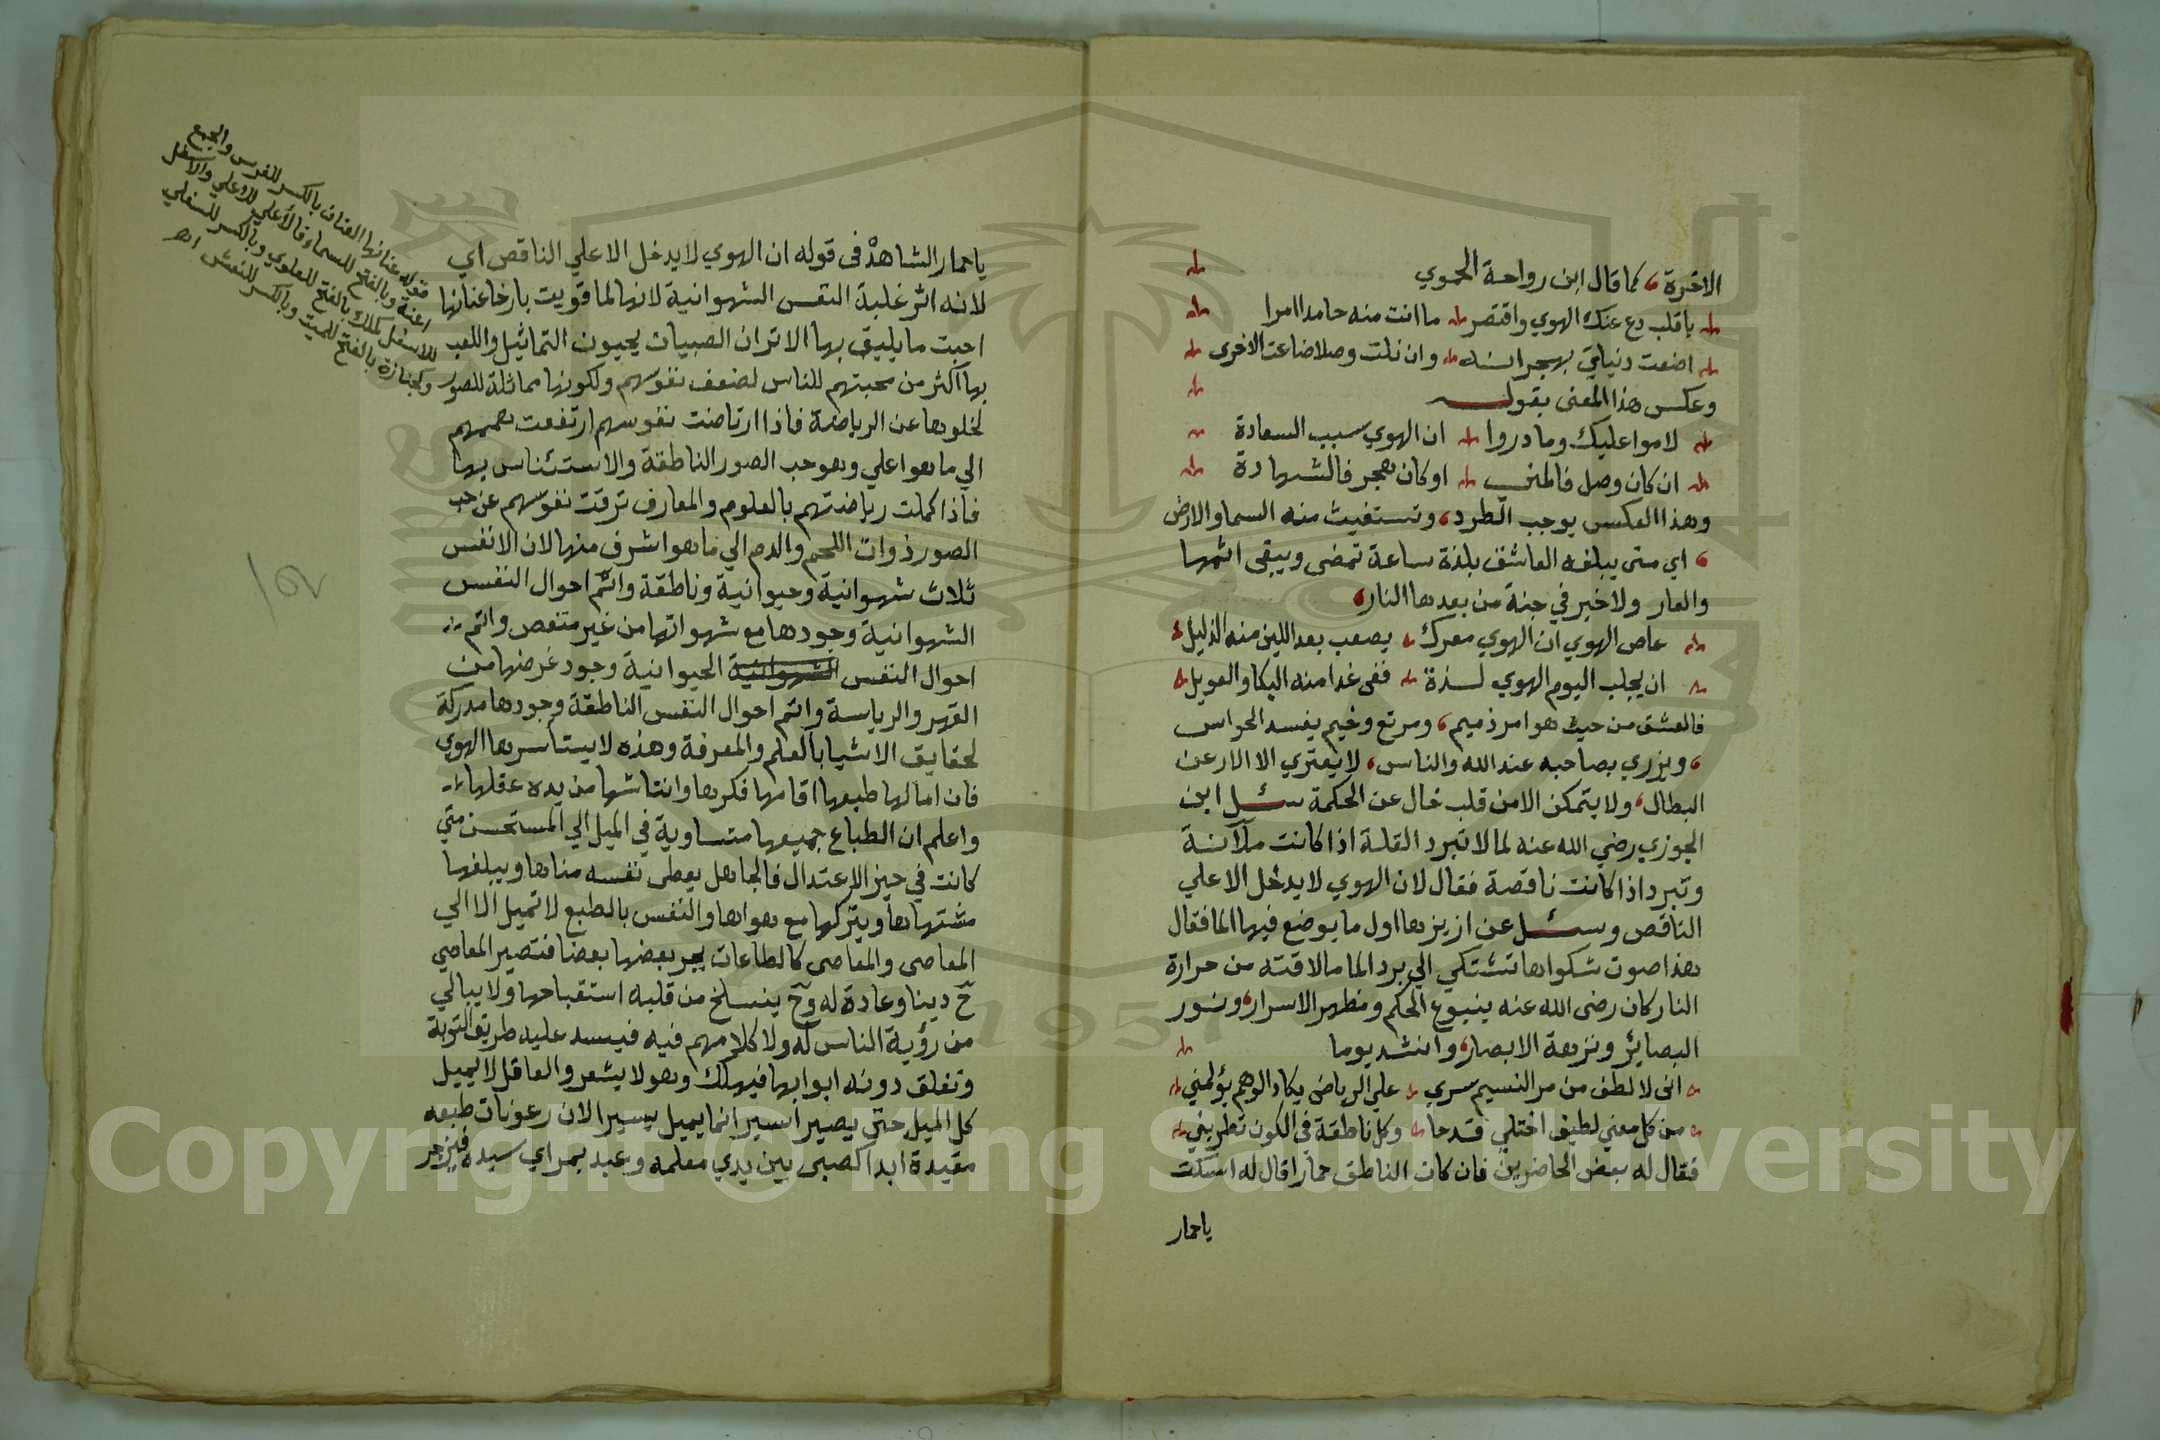 الاخرة، كما قال ابن رواحة الحموي
يا قلب دع عنك الهوي واقتصر ما انت منه حامدا امرا
اضعت دنياي بهجرانه وان نلت وصلا ضاعت الاخرى
وعكس هذا المعنى بقوله
لاموا عليك وما دروا ان الهوي سبب السعادة
ان كان وصل فالمنى او كان هجر فالشهادة
وهذا العكس يوجب الطرد، وتستغيث منه السما والارض
، اي متى يبلغه العاشق بلذة ساعة تمضى ويبقى اثمها
والعار ولا خير في جنة من بعدها النار،
عاص الهوي ان الهوي معرك يصعب بعد اللين منه الذليل
ان يجلب اليوم الهوي لذة ففى غدا منه البكا والعويل
فالعشق من حيث هو امر ذميم، ومرتع وخيم يفسد الحواس
، ويزري بصاحبه عند الله والناس، لا يعتري الا الارعن
البطال، ولا يتمكن الا من قلب خال عن الحكمة سئل ابن
الجوزي رضي الله عنه لما لا تبرد القلة اذا كانت ملآنة
وتبرد اذا كانت ناقصة فقال لان الهوي لا يدخل الا علي
الناقص وسئل عن ازيزها اول ما يوضع فيها الما فقال
هذا صوت شكواها تشتكي الي برد الما ما لاقته من حرارة
النار كان رضى الله عنه ينبوع الحكم ومظهر الاسرار، ونور
البصائر ونزهة الابصار، وانشد يوما
انى لالطف من مر النسيم سري علي الرياض يكاد الوهم يؤلمني
من كل معني لطيف اختلي قدحا وكل ناطقة في الكون تطربني
فقال له بعض الحاضرين فان كان الناطق حمارا قال له اسكت
يا حمار
يا حمار الشاهد فى قوله ان الهوي لا يدخل الا علي الناقص اي
لانه اثر غلبة النفس الشهوانية لانها لما قويت بارخا عنانها
احبت ما يليق بها الا تر ان الصبيان يحبون التماثيل واللعب
بها اكثر من محبتهم للناس لضعف نفوسهم ولكونها مماثلة للصور
لخلوها عن الرياضة فاذا ارتاضت نفوسهم ارتفعت هممهم
الي ما هو اعلي وهو حب الصور الناطقة والاستئناس بها
فاذا كملت رياضتهم بالعلوم والمعارف ترقت نفوسهم عن حب
الصور ذوات اللحم والدم الي ما هو اشرف منها لان الانفس
ثلاث شهوانية وحيوانية وناطقة واتم احوال النفس
الشهوانية وجودها مع شهواتها من غير منغص واتم
احوال النفس الشهوانية الحيوانية وجود غرضها من
القهر والرياسة واتم احوال النفس الناطقة وجودها مدركة
لحقايق الاشيا بالعلم والمعرفة وهذه لا يستاسرها الهوي
فان امالها طبعها اقامها فكرها وانتاشها من يده عقلها
واعلم ان الطباع جميعها متساوية في الميل الي المستحسن متي
كانت في حيز الاعتدال فالجاهل يعطى نفسه مناها ويبلغها
مشتهاها ويتركها مع هواها والنفس بالطبع لا تميل الا الي
المعاصى والمعاصى كالطاعات يجر بعضها بعضا فتصير المعاصي
ح دينا وعادة له وح ينسلخ من قلبه استقباحها ولا يبالي
من رؤية الناس له ولا كلامهم فيه فيسد عليه طريق التوبة
وتغلق دونه ابوابها فيهلك وهو لا يشعر والعاقل لا يميل
كل الميل حتى يصير اسير انما يميل يسيرا لان رعونات طبعه
مقيدة ابدا كصبى بين يدي معلمه وعبد بمراي سيده فينزجر
قوله عنانها العنان بالكسر للفرس والجمع
اعنة وبالفتح للسماء فالأعلي للاعلي والاسفل
للاسفل كذلك بالفتح للعلوي وبالكسر للسفلي
وكجنازة بالفتح للميت وبالكسر للنعش اهـ